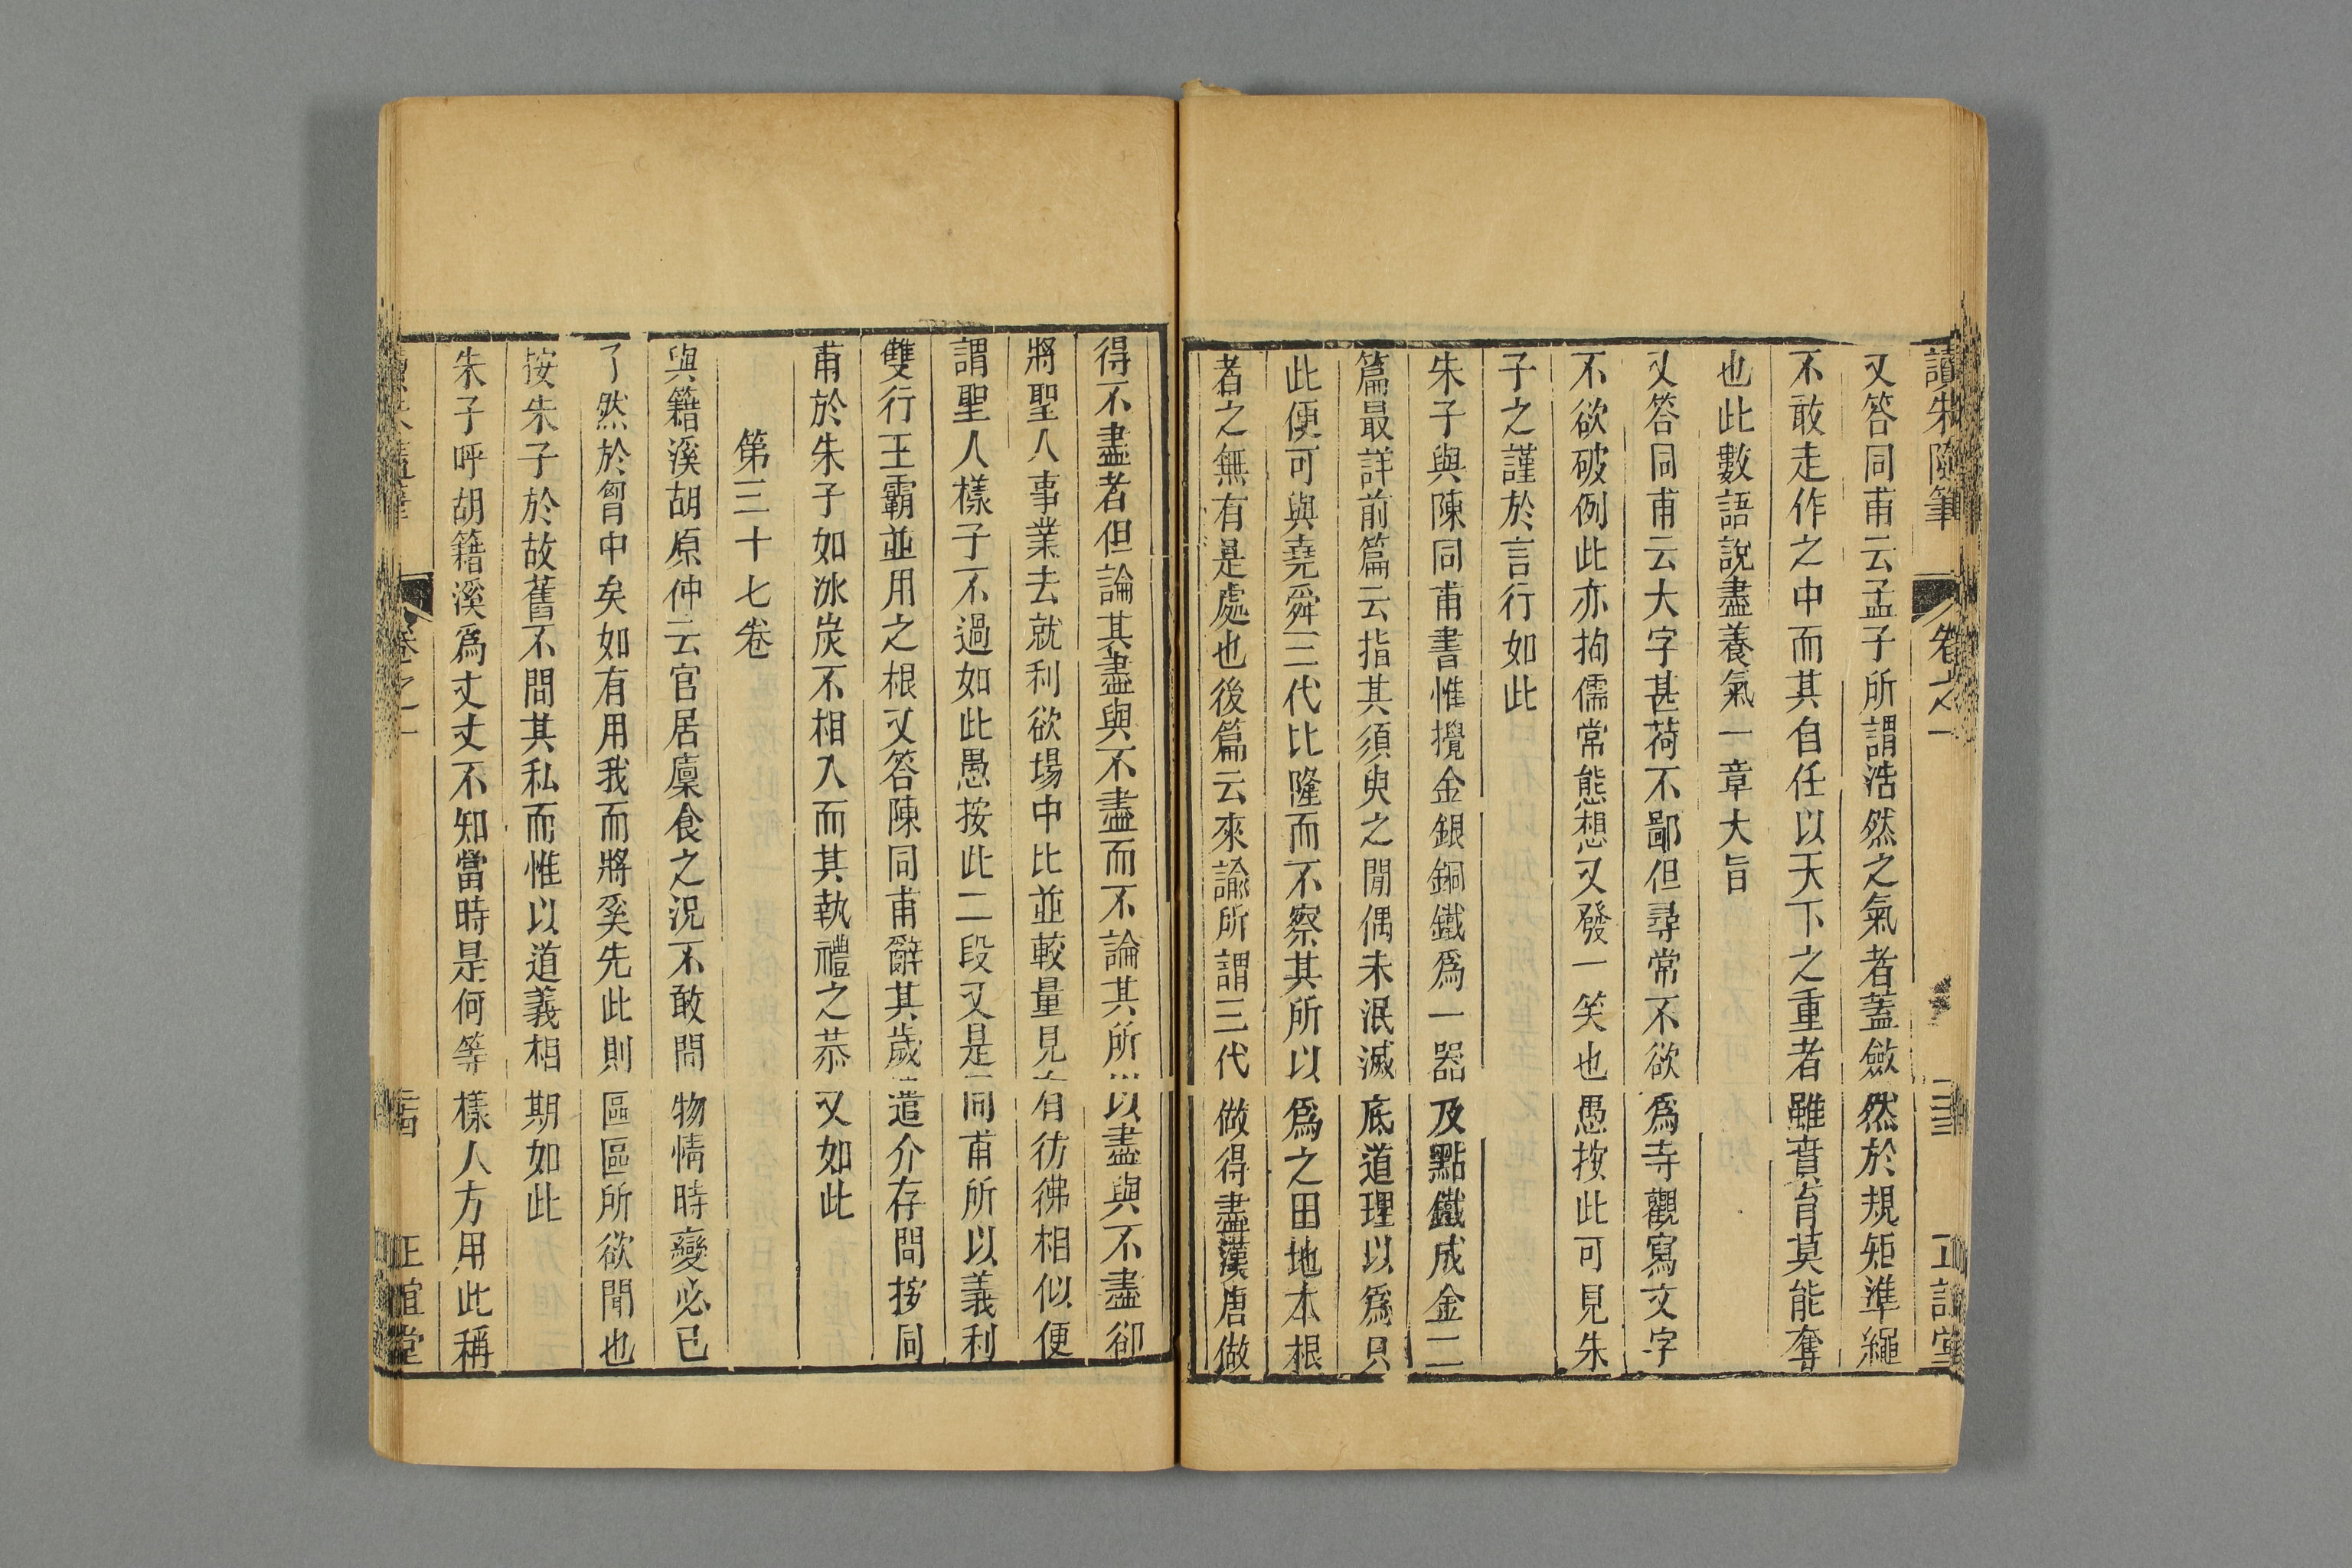 讀朱隨筆 卷之一 三三 正誼堂
又答同甫云孟子所謂浩然之氣者蓋斂然於規矩準繩
不敢走作之中而其自任以天下之重者雖賁育莫能奪
也此數語說盡養氣一章大旨
又答同甫云大字甚荷不鄙但尋常不欲爲寺觀寫文字
不欲破例此亦拘儒常態想又發一笑也愚按此可見朱
子之謹於言行如此
朱子與陳同甫書惟攪金銀銅鐵爲一器及點鐵成金二
篇最詳前篇云指其須臾之閒偶未泯滅底道理以爲只
此便可與堯舜三代比隆而不察其所以爲之田地本根
者之無有是處也後篇云來諭所謂三代做得盡漢唐做
得不盡者但論其盡與不盡而不論其所以盡與不盡卻
將聖人事業去就利欲場中比並較量見有彷彿相似便
謂聖人樣子不過如此愚按此二段又是同甫所以義利
雙行王霸並用之根又答陳同甫辭其歲遣介存問按同
甫於朱子如冰炭不相入而其執禮之恭又如此
第三十七卷
與籍溪胡原仲云官居廩食之況不敢問物情時變必已
了然於胷中矣如有用我而將奚先此則區區所欲聞也
按朱子於故舊不問其私而惟以道義相期如此
朱子呼胡籍溪爲丈丈不知當時是何等樣人方用此稱
讀朱隨筆 卷之一 正誼堂